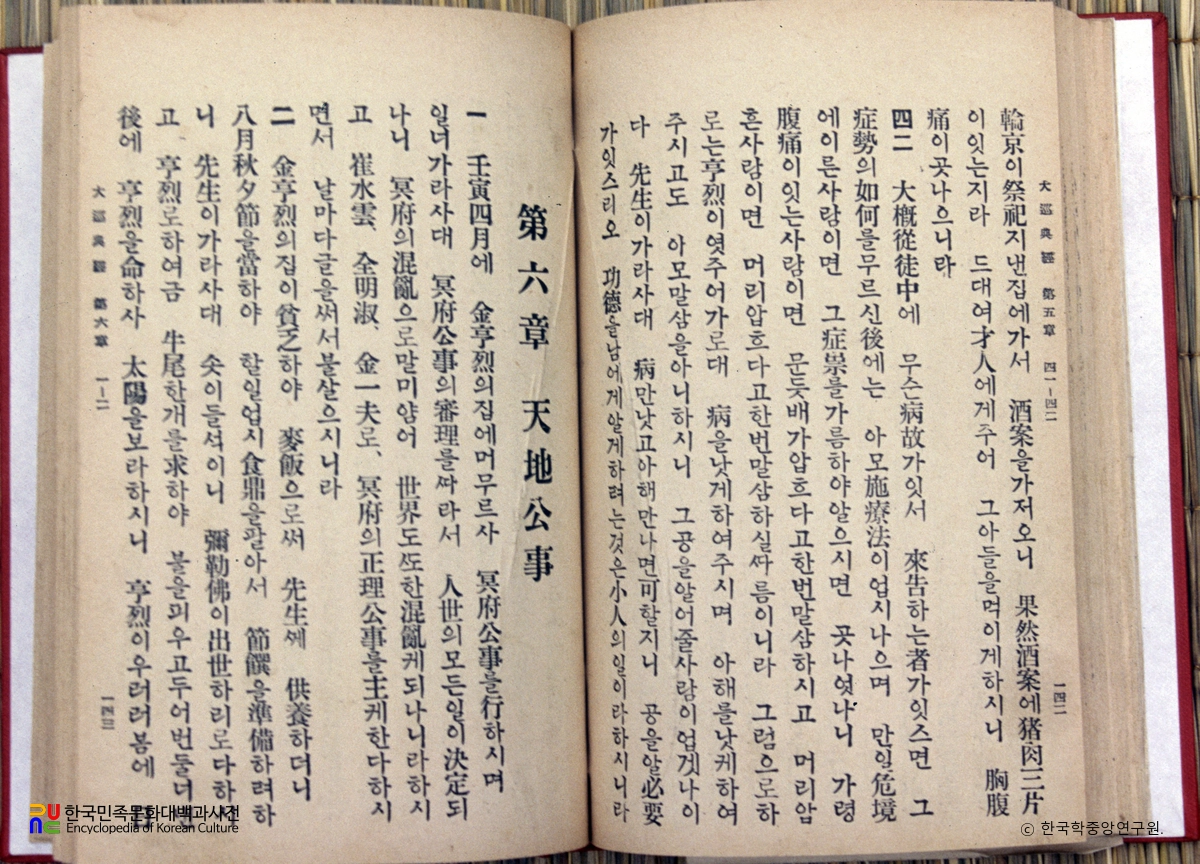 大巡典經 第五章 四一-四二
一四二
輪京이祭祀지낸집에가서 酒案을가저오니 果然酒案에猪肉三片
이잇는지라 드대여才人에게주어 그아들을먹이게하시니 胸腹
痛이곳나으니라
四二 大槪從徒中에 무슨病故가잇서 來告하는者가잇스면 그
症勢의如何를무르신後에는 아모施療法이업시나으며 만일危境
에이른사람이면 그症祟를가름하야알으시면 곳나엿나니 가령
腹痛이잇는사람이면 문듯배가압흐다고한번말삼하시고 머리압
흔사람이면 머리압흐다고한번말삼하실ᄯᅡ름이니라 그럼으로하
로는亨烈이엿주어가로대 病을낫게하여주시며 아해를낫케하여
주시고도 아모말삼을아니하시니 그공을알어줄사람이업겟나이
다 先生이가라사대 病만낫고아해만나면可할지니 공을알必要
가잇스리오 功德을남에게알게하려는것은小人의일이라하시니라
第六章 天地公事
一 壬寅四月에 金亨烈의집에머무르사 冥府公事를行하시며
일너가라사대 冥府公事의審理를ᄯᅡ라서 人世의모든일이決定되
나니 冥府의混亂으로말미암어 世界도ᄯᅩ한混亂케되나니라하시
고 崔水雲、全明淑、金一夫로、冥府의正理公事를主케한다하시
면서 날마다글을써서불살으시니라
二 金亨烈의집이貧乏하야 麥飯으로써 先生ᄭᅦ 供養하더니
八月秋夕節을當하야 할일업시食鼎을팔아서 節饌을準備하려하
니 先生이가라사대 솟이들석이니 彌勒佛이出世하리로다하
고 亨烈로하여금 牛尾한개를求하야 불을픠우고두어번둘너
後에 亨烈을命하사 太陽을보라하시니 亨烈이우러러봄에
大巡典經 第六章 一-二
一四三
한국민족문화대백과사전
Encyclopedia of Korean Culture
© 한국학중앙연구원.